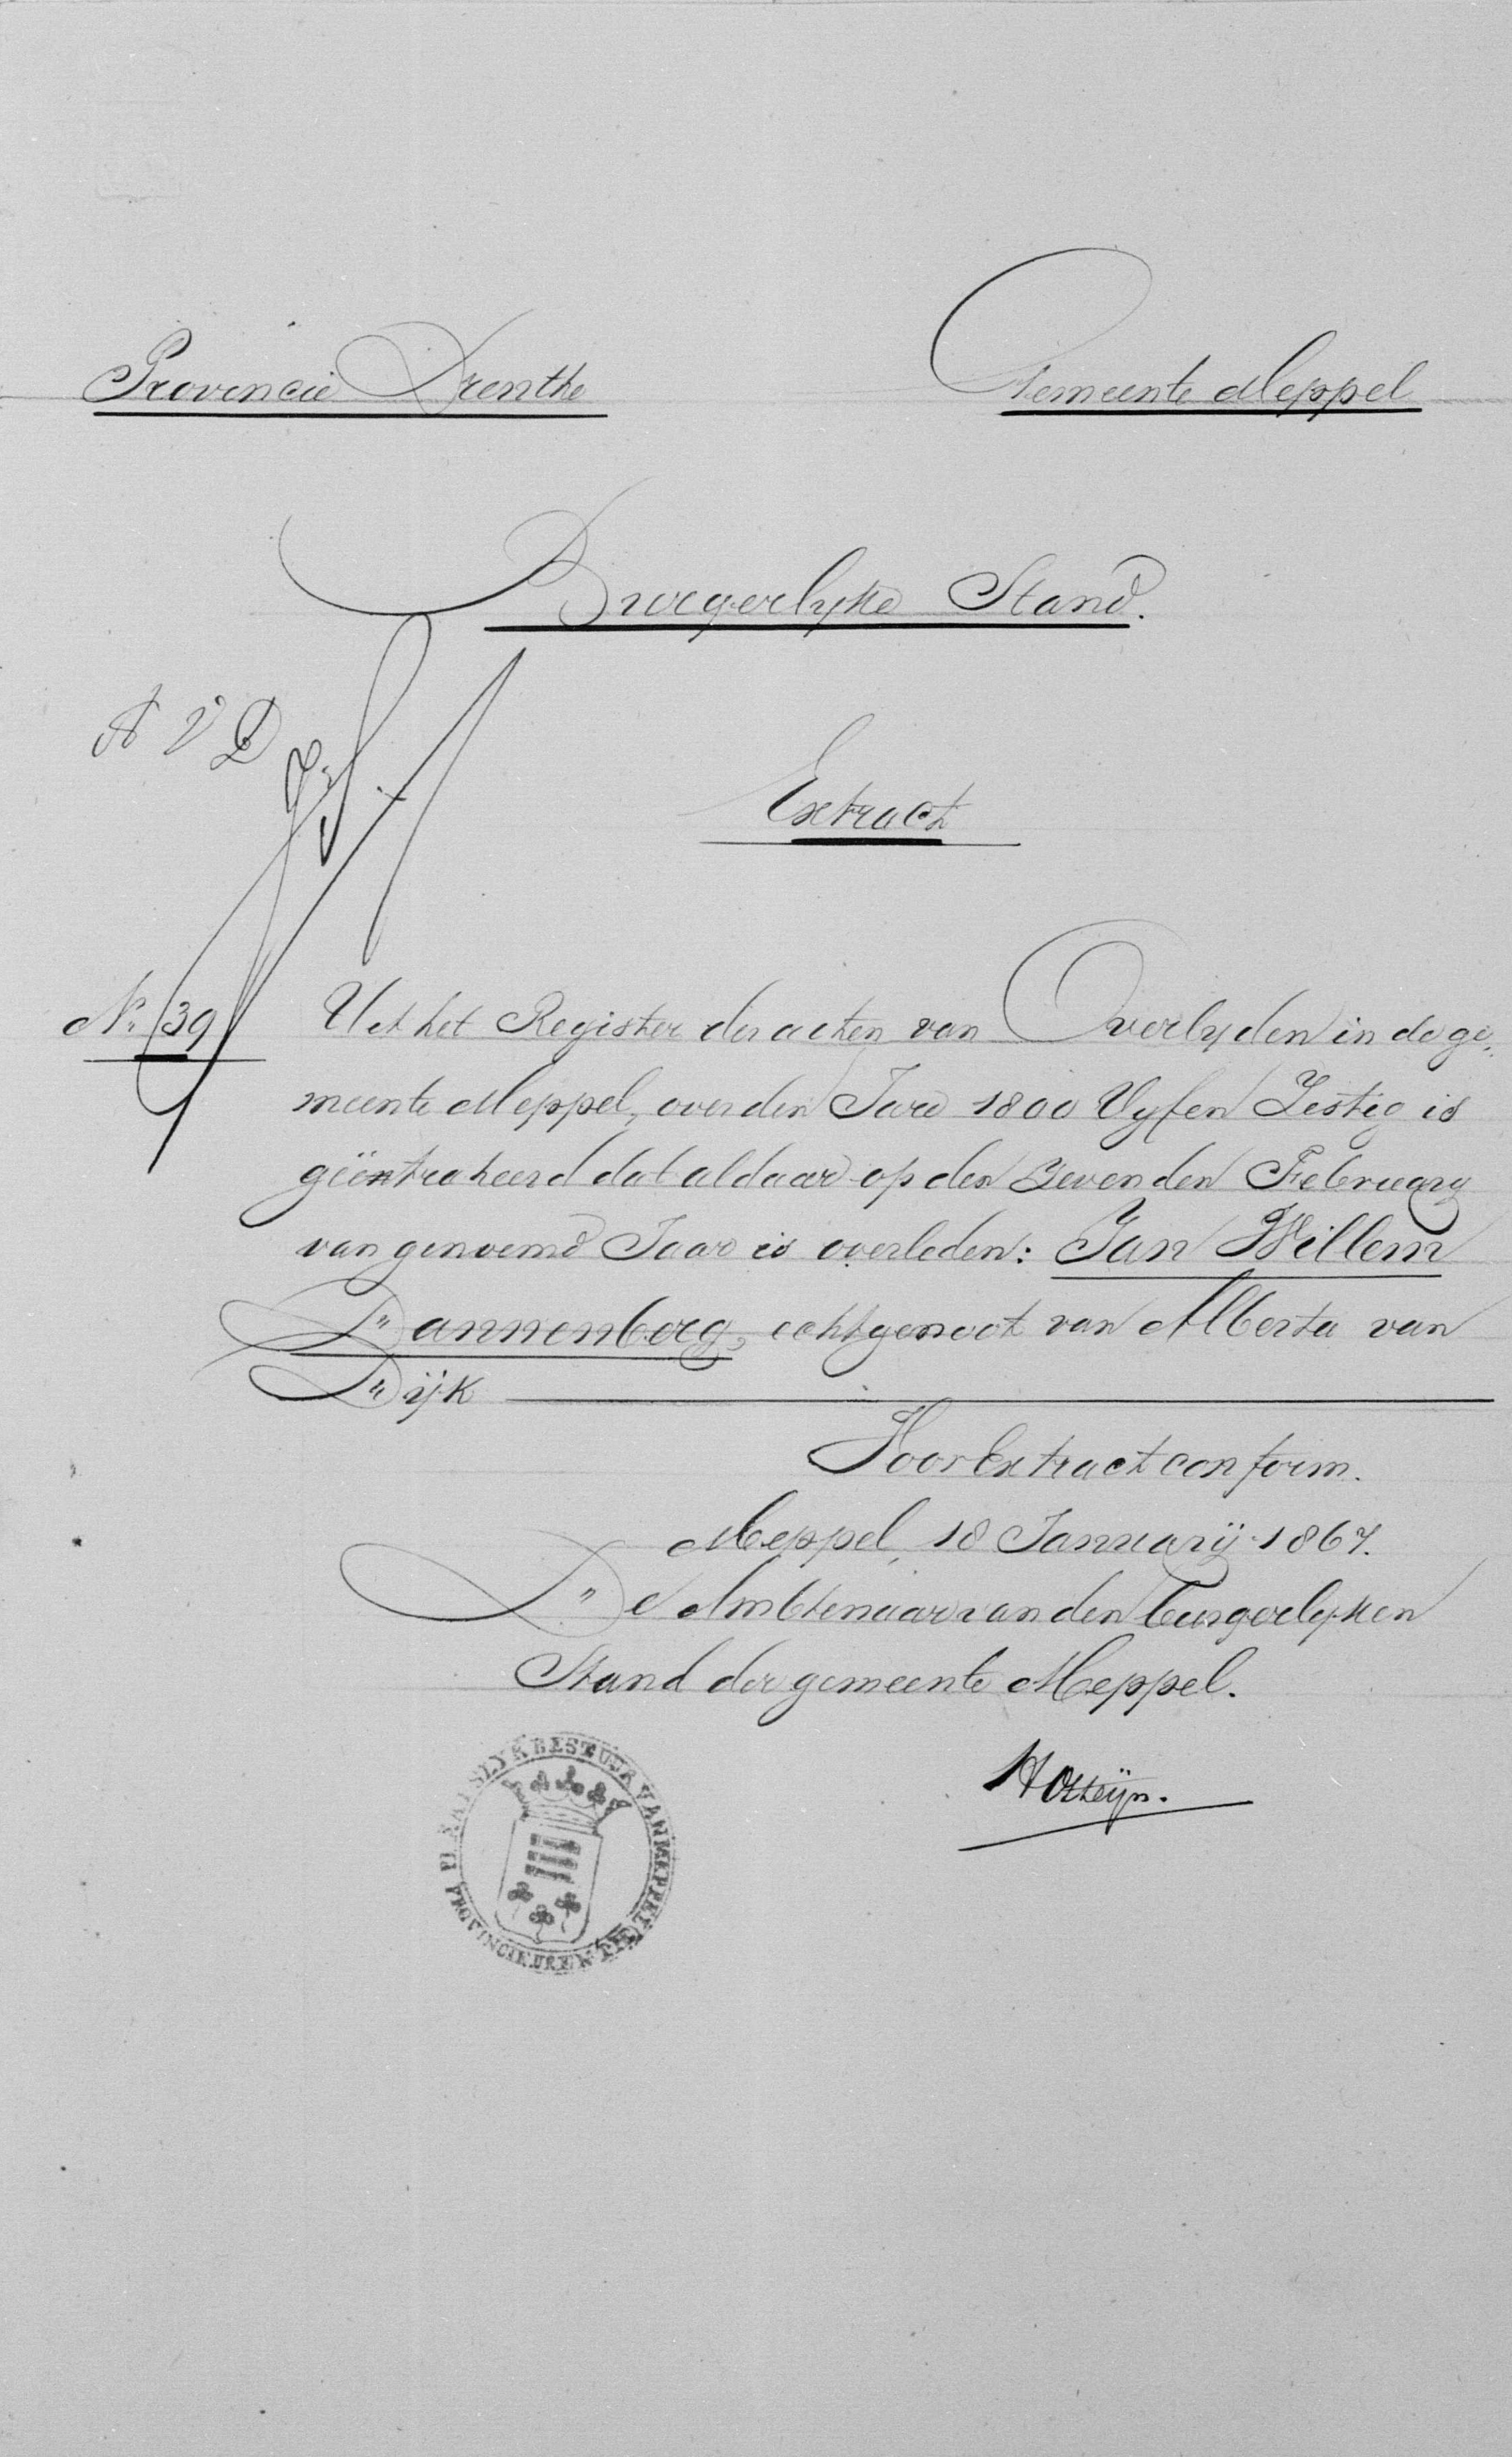 Provincie Drenthe
Gemeente Meppel
Burgerlyke Stand.
A V D
Extract
No. 39
Uit het Register der acten van Overlyden in de ge-
meente Meppel, over den Jare 1800 Vyf en Zestig is
geëxtraheerd dat aldaar op den Zevenden February
van genoemd Jaar is overleden: Jan Willem
Dannenberg, echtgenoot van Alberta van
Dijk
Voor Extract conform.
Meppel, 18 Januarij 1867.
De Ambtenaar van den Burgerlyken
Stand der gemeente Meppel.
PLAATSLYK BESTUUR VAN MEPPEL
PROVINCIE DRENTHE